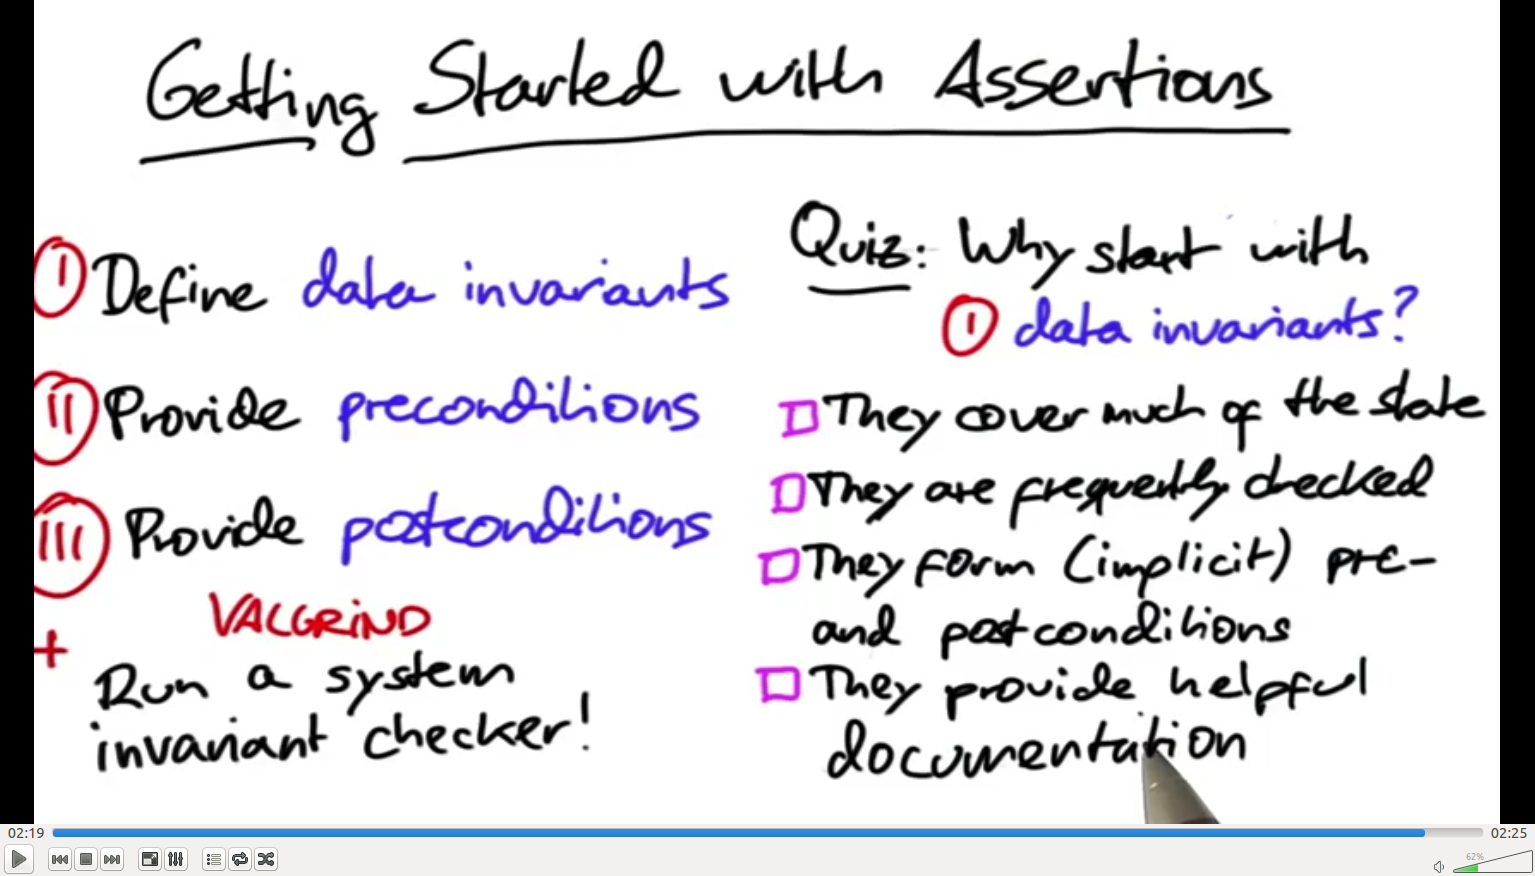 Getting Started with Assertions
I Define data invariants
II Provide preconditions
III Provide postconditions
VALGRIND
+ Run a system
invariant checker!
Quiz: Why start with
I data invariants?
They cover much of the state
They are frequently checked
They form (implicit) pre-
and postconditions
They provide helpful
documentation
02:19
02:25
62%